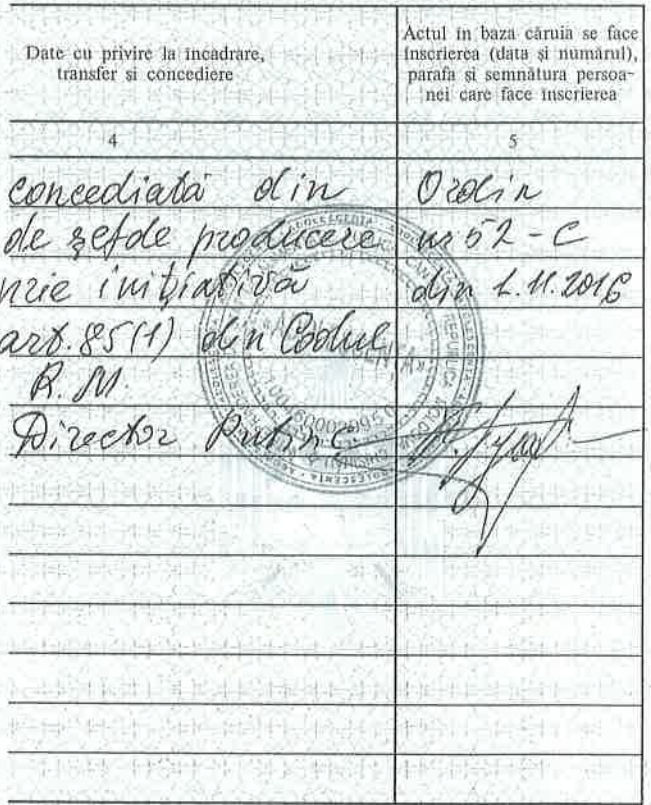 Date cu privire la încadrare,
transfer si concediere
Actul în baza căruia se face
înscrierea (data și numărul),
parafa și semnătura persoa-
nei care face înscrierea
4
5
concediată din
Ordin
de șef de producere
nr 52 - C
inițiativă
din 1.11.2016
art. 85(1) din Codul
R. M.
Director
REPUBLICA MOLDOVA